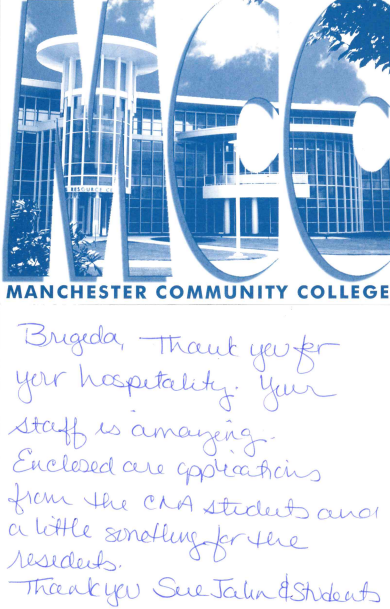 MCC
RESOURCE C
MANCHESTER COMMUNITY COLLEGE
Brigeda, Thank you for
your hospitality. Your
staff is amazing.
Enclosed are applications
from the CNA students and
a little something for the
residents.
Thank you Sue Jahn & Students